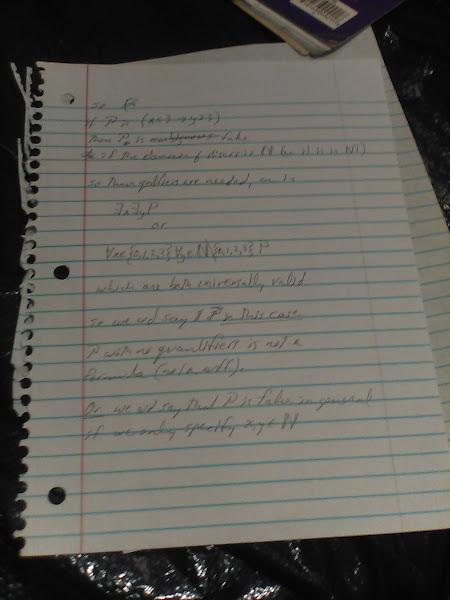 so
if P is (x<3 → y≥3)
then P is ambiguous false
if the domain of discourse is N (x it is in N)
so then quantifiers are needed, as in
∃x∃y P
or
∀x∈{0,1,2,3} ∀y∈N\{0,1,2,3} P
which are both universally valid
so we cd say P in this case
P with no quantifiers is not a
formula (not a wff).
Or we cd say that P is false in general
if we only specify x,y ∈ N